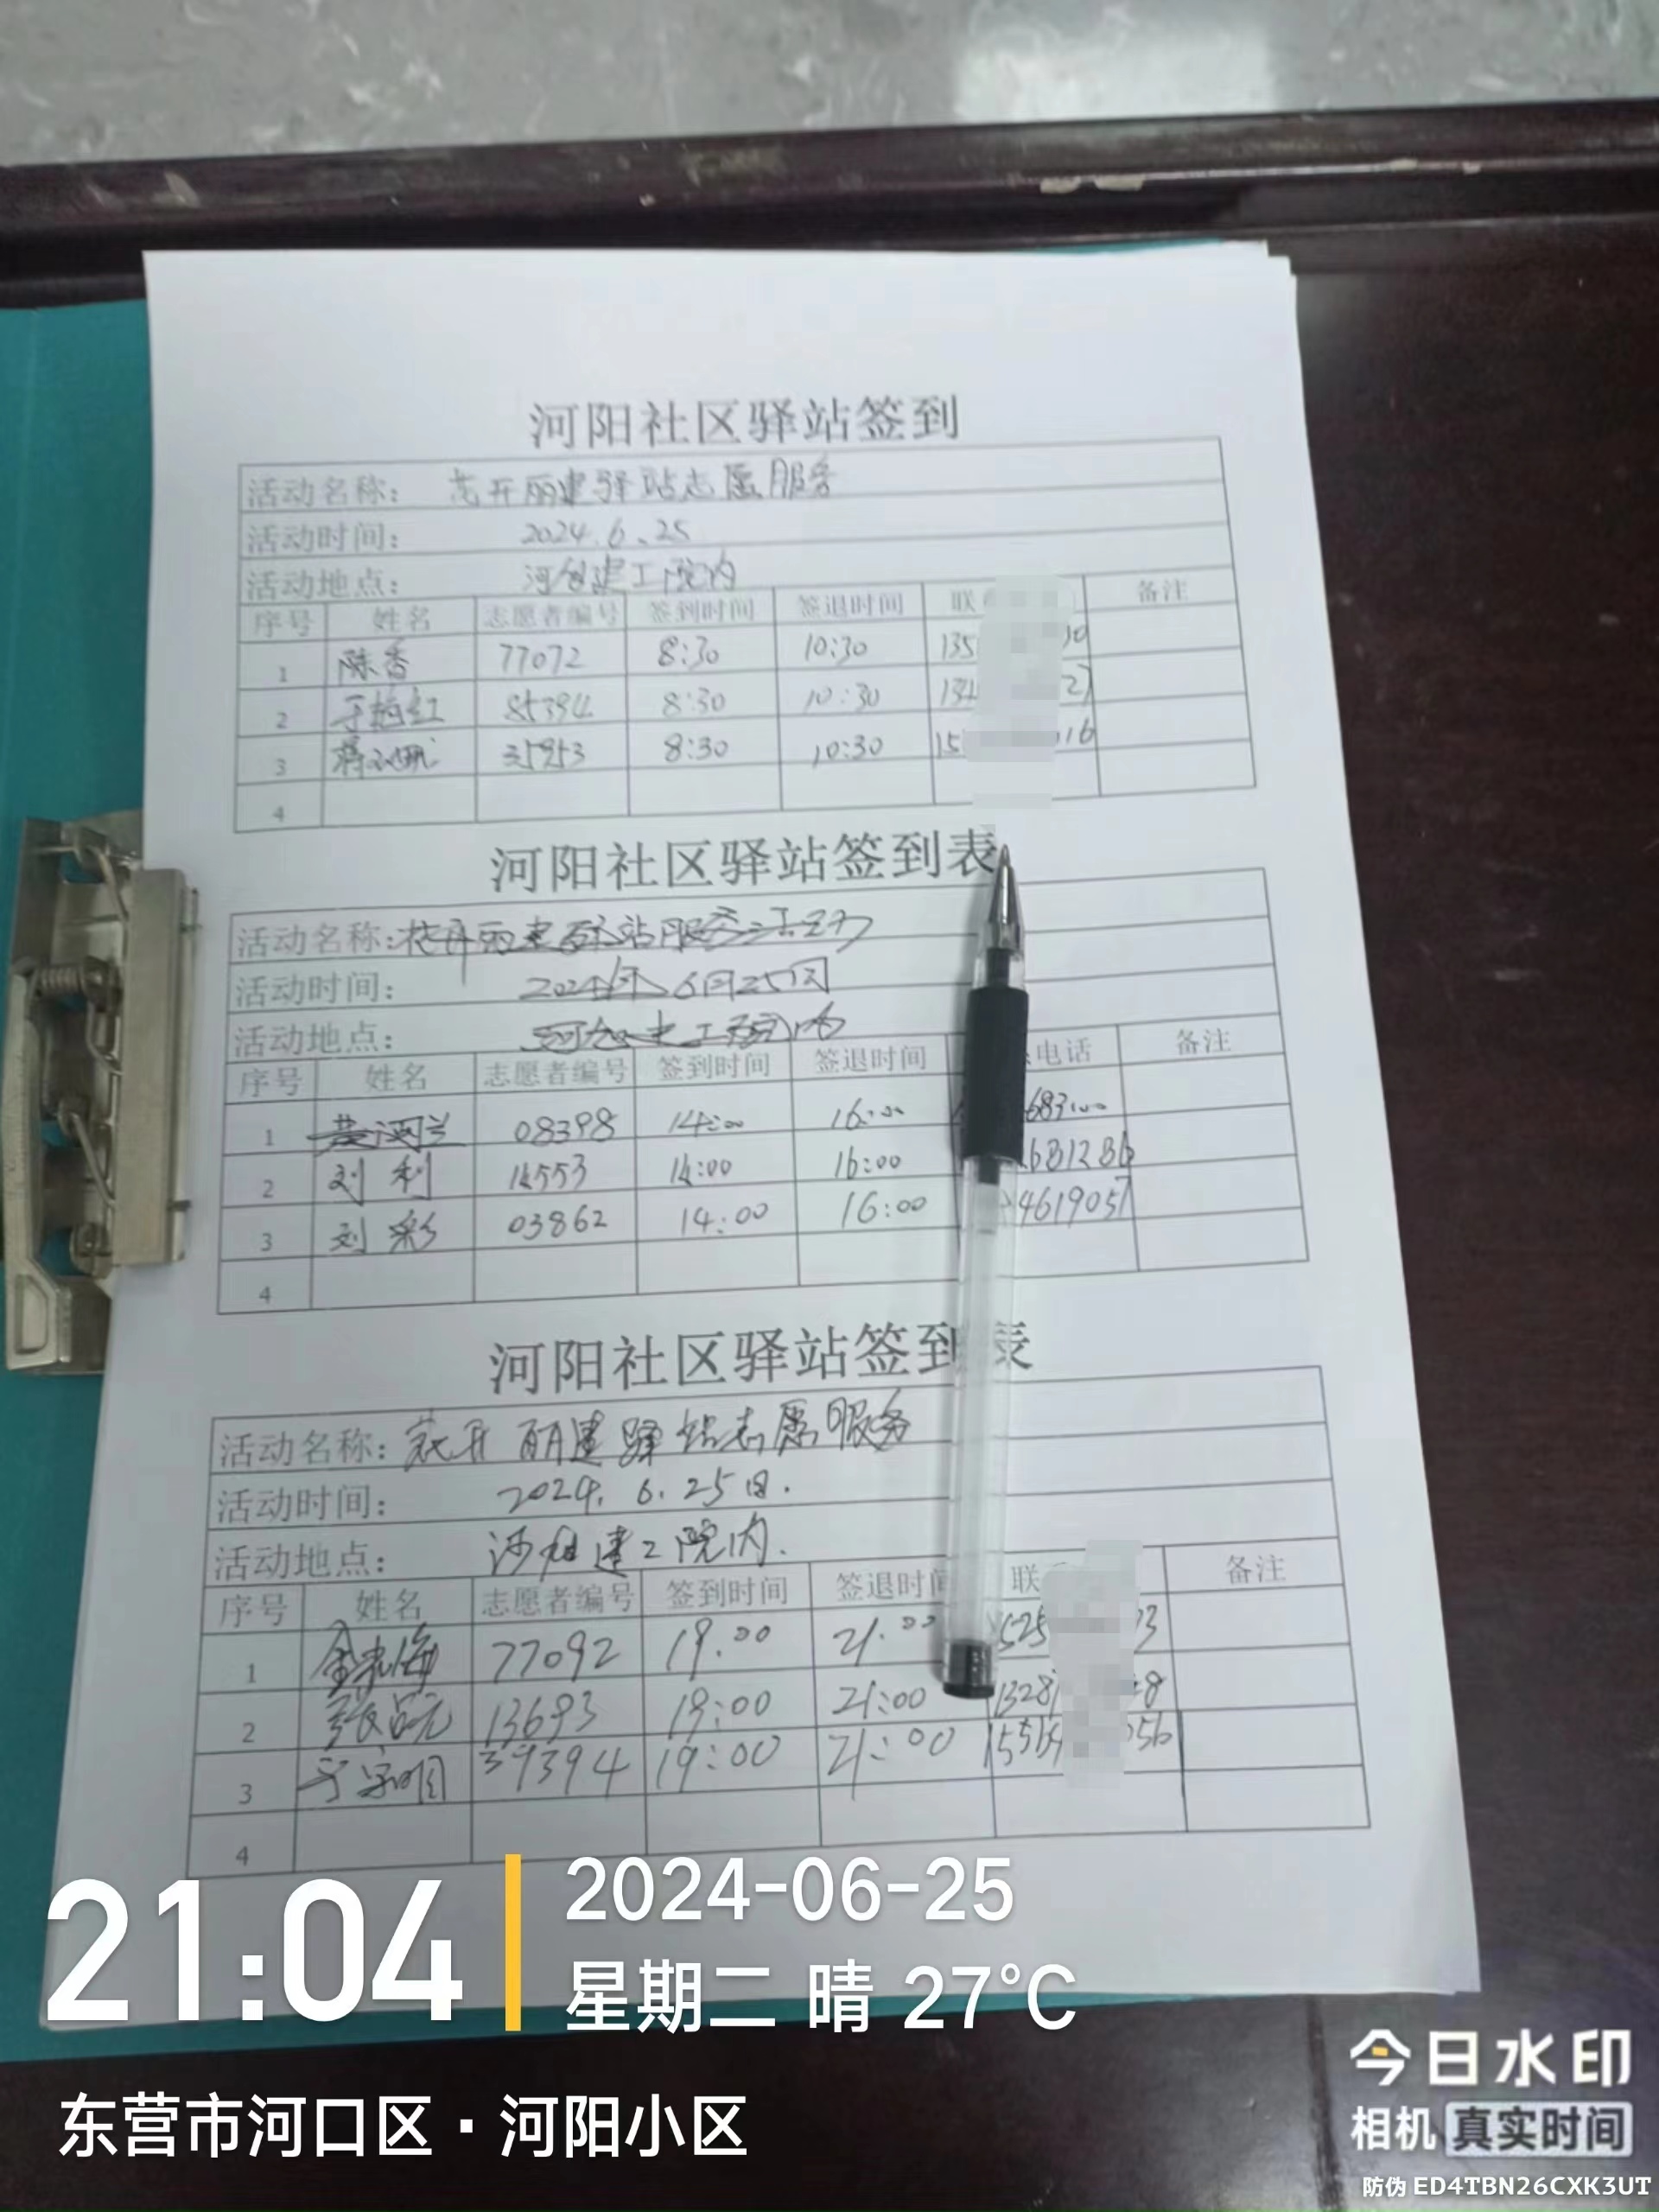 河阳社区驿站签到
活动名称： 花开丽建驿站志愿服务
活动时间： 2024.6.25
活动地点： 河创建工院内
序号 姓名 志愿者编号 签到时间 签退时间 联 备注
1 陈香 77072 8:30 10:30 135 30
2 85394 8:30 10:30 134 27
3 35953 8:30 10:30 15 16
4
河阳社区驿站签到表
活动名称: 花开丽建驿站服务活动
活动时间： 2024年6月25日
活动地点： 建工院内
序号 姓名 志愿者编号 签到时间 签退时间 电话 备注
1 08398 14:00 16:00 683
2 刘利 14553 14:00 16:00 681286
3 刘彩 03862 14:00 16:00 4619057
4
河阳社区驿站签到表
活动名称: 花开丽建驿站志愿服务
活动时间： 2024. 6. 25日.
活动地点： 建工院内.
序号 姓名 志愿者编号 签到时间 签退时间 联 备注
1 77092 19.00 21.00 525 3
2 13693 19:00 21:00 1328 8
3 39394 19:00 21:00 155 056
4
21:04
2024-06-25
星期二 晴 27°C
东营市河口区·河阳小区
今日水印
相机 真实时间
防伪 ED4TBN26CXK3UT